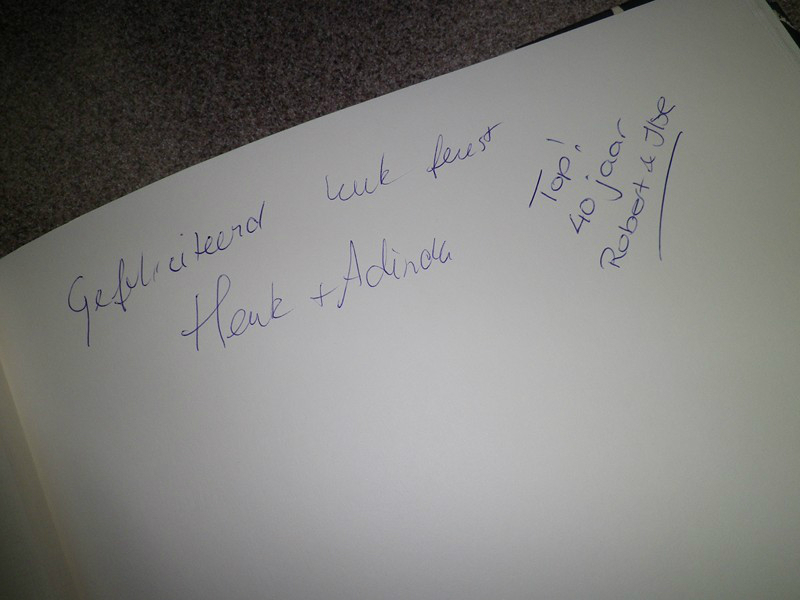 Gefeliciteerd leuk feest
Henk + Adinda
Top!
40 jaar
Robert & Ilse